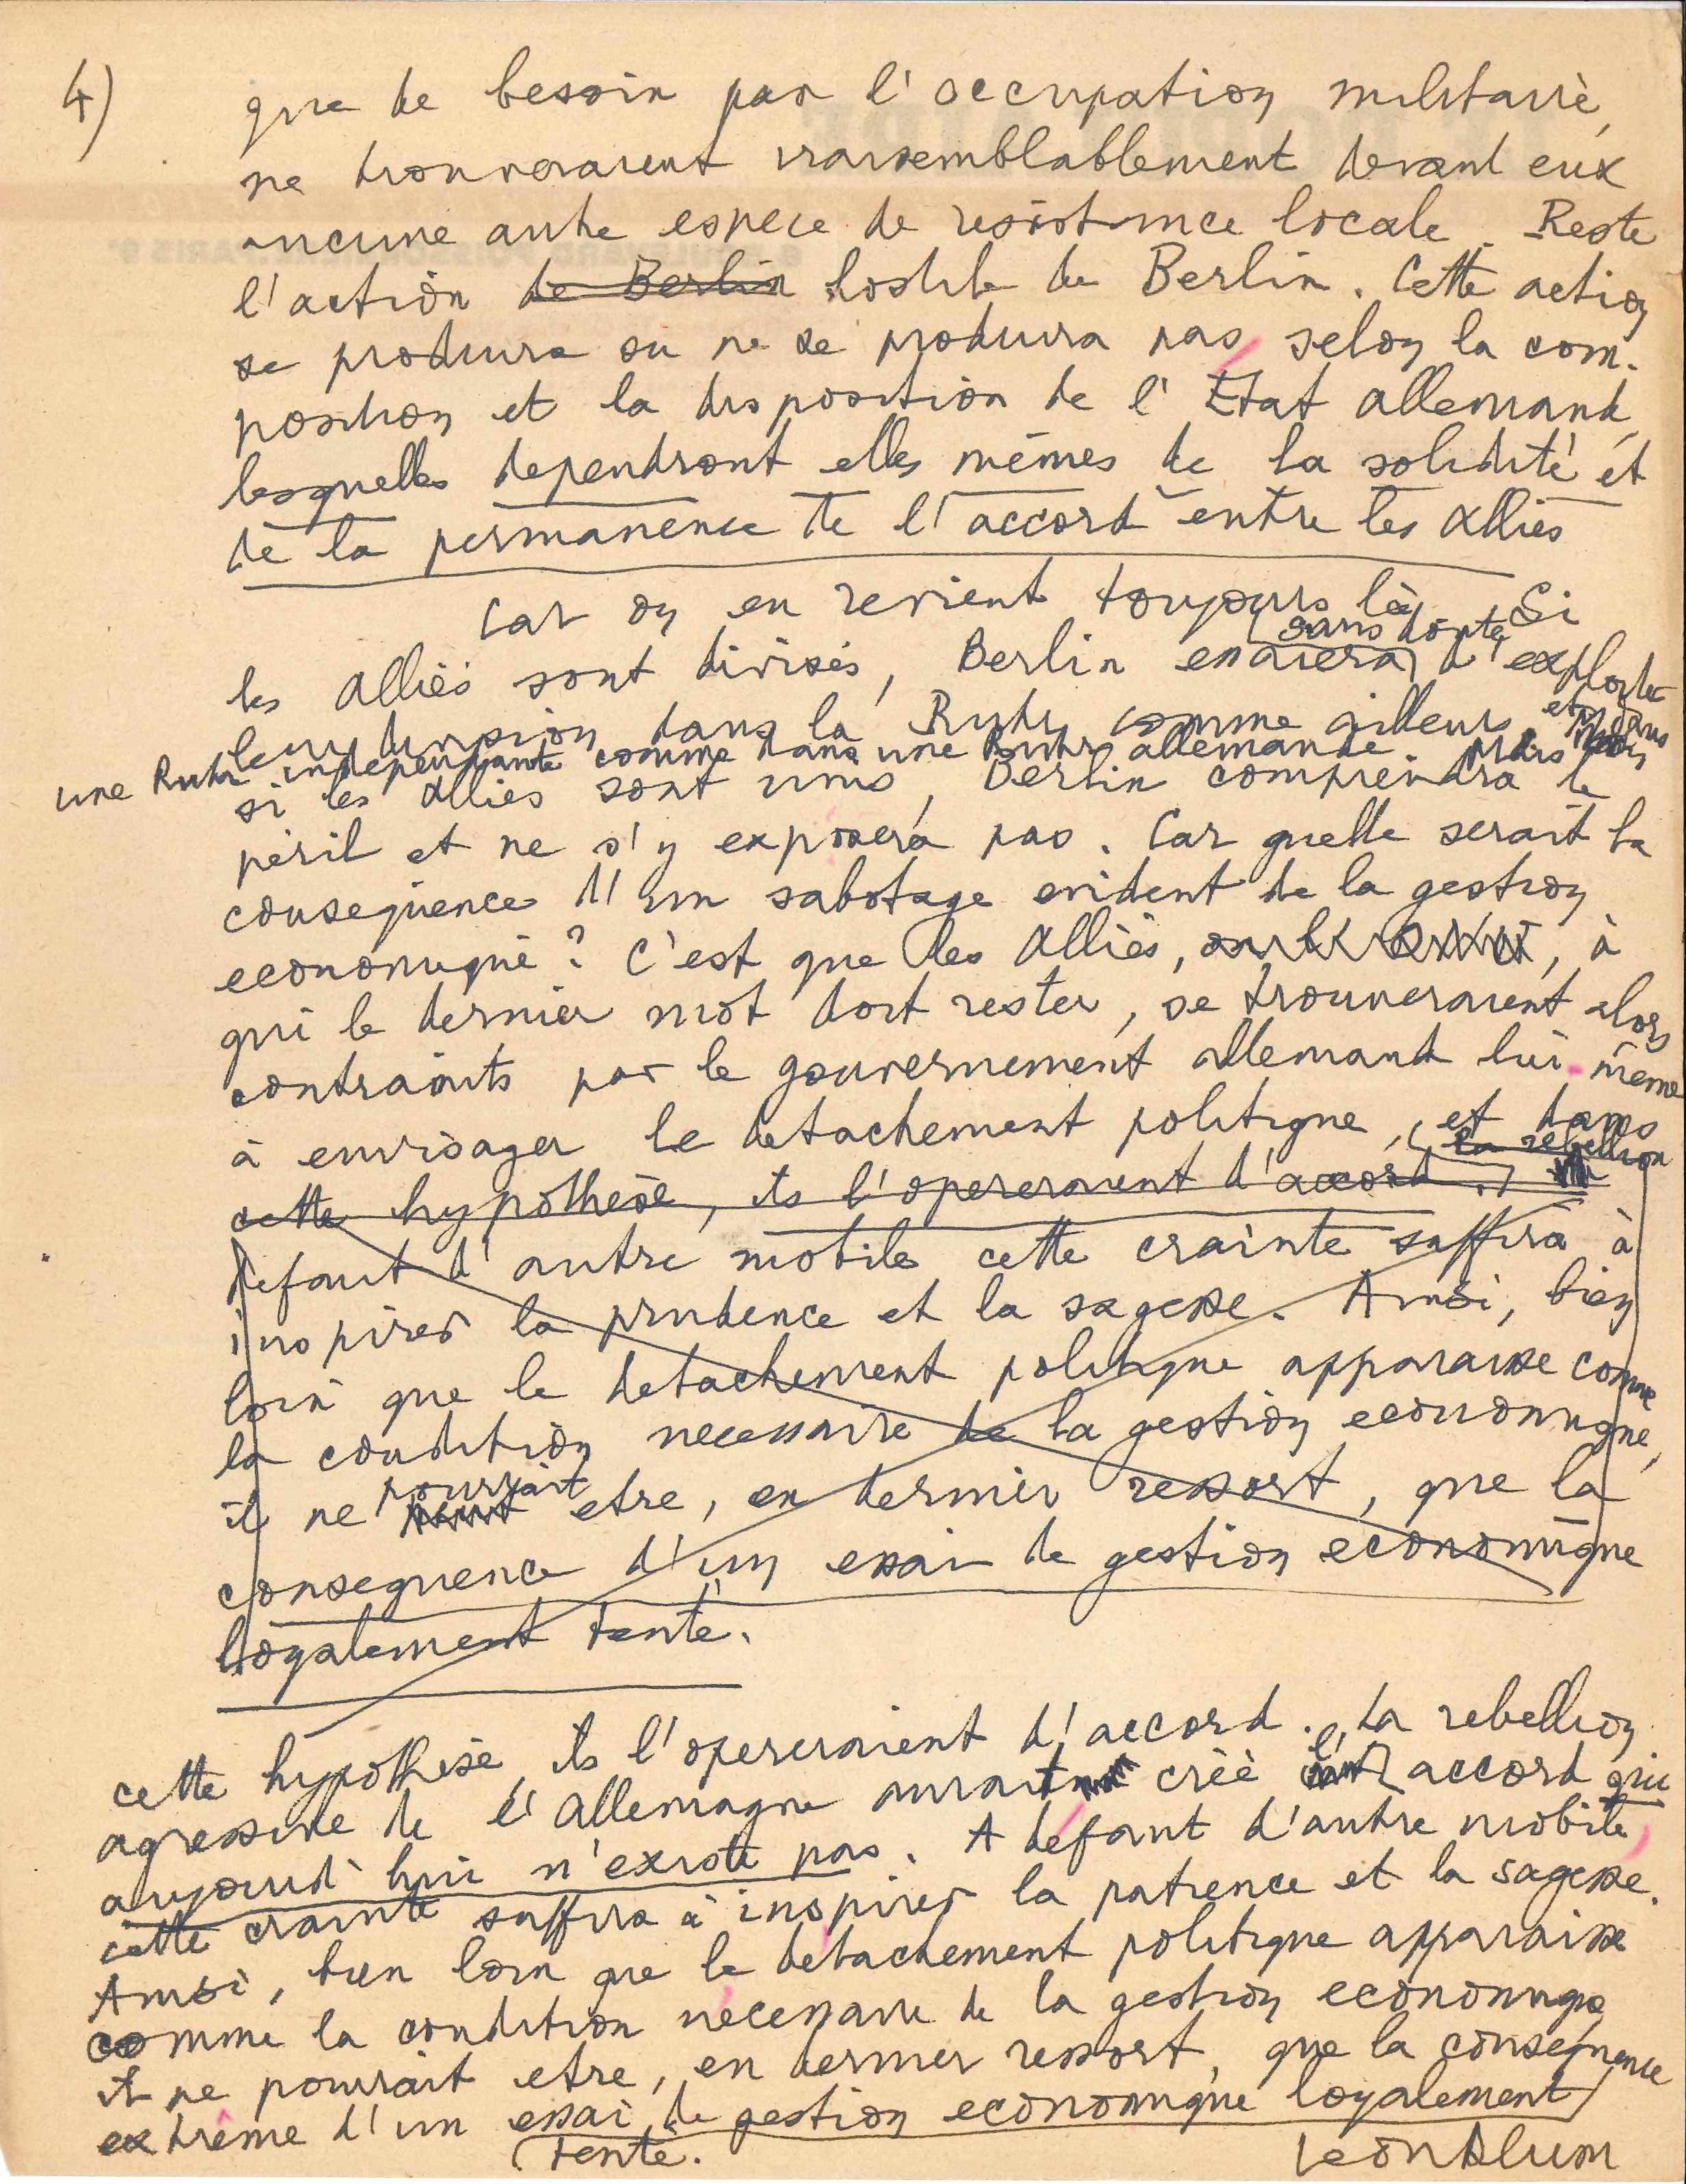 4)
que de besoin par l'occupation militaire,
ne trouveraient vraisemblablement devant eux
aucune autre espece de resistance locale. Reste
l'action de Berlin hostile de Berlin. Cette action
se produira ou ne se produira pas selon la com-
position et la disposition de l'Etat allemand,
lesquelles dependront elles mêmes de la solidité et
de la permanence de l'accord entre les Alliés
Car on en revient toujours là. Si
sans doute
les Alliés sont divisés, Berlin essaiera d'exploiter
leur division dans la Ruhr comme ailleurs et dans
une Ruhr independante comme dans une Ruhr allemande. Mais
si les Alliés sont unis, Berlin comprendra le
péril et ne s'y exposera pas. Car quelle serait la
consequence d'un sabotage evident de la gestion
economique? C'est que les Alliés, à
qui le dernier mot doit rester, se trouveraient alors
contraints par le gouvernement allemand lui-même
à envisager le detachement politique, et dans
la rebellion
cette hypothèse, ils l'opereraient d'accord.
defaut d'autre mobile cette crainte suffira à
inspirer la prudence et la sagesse. Ainsi, bien
loin que le detachement politique apparaisse comme
la condition necessaire de la gestion economique,
pourrait
il ne peut etre, en dernier ressort, que la
consequence d'un essai de gestion economique
loyalement tenté.
cette hypothèse, ils l'opereraient d'accord. La rebellion
agressive de l'Allemagne aurait créé l'accord qui
aujourd'hui n'existe pas. A défaut d'autre mobile,
cette crainte suffira à inspirer la patience et la sagesse.
Ainsi, bien loin que le détachement politique apparaisse
comme la condition nécessaire de la gestion economique
il ne pourrait etre, en dernier ressort, que la conséquence
extrême d'un essai de gestion economique loyalement
tenté.
Leon Blum